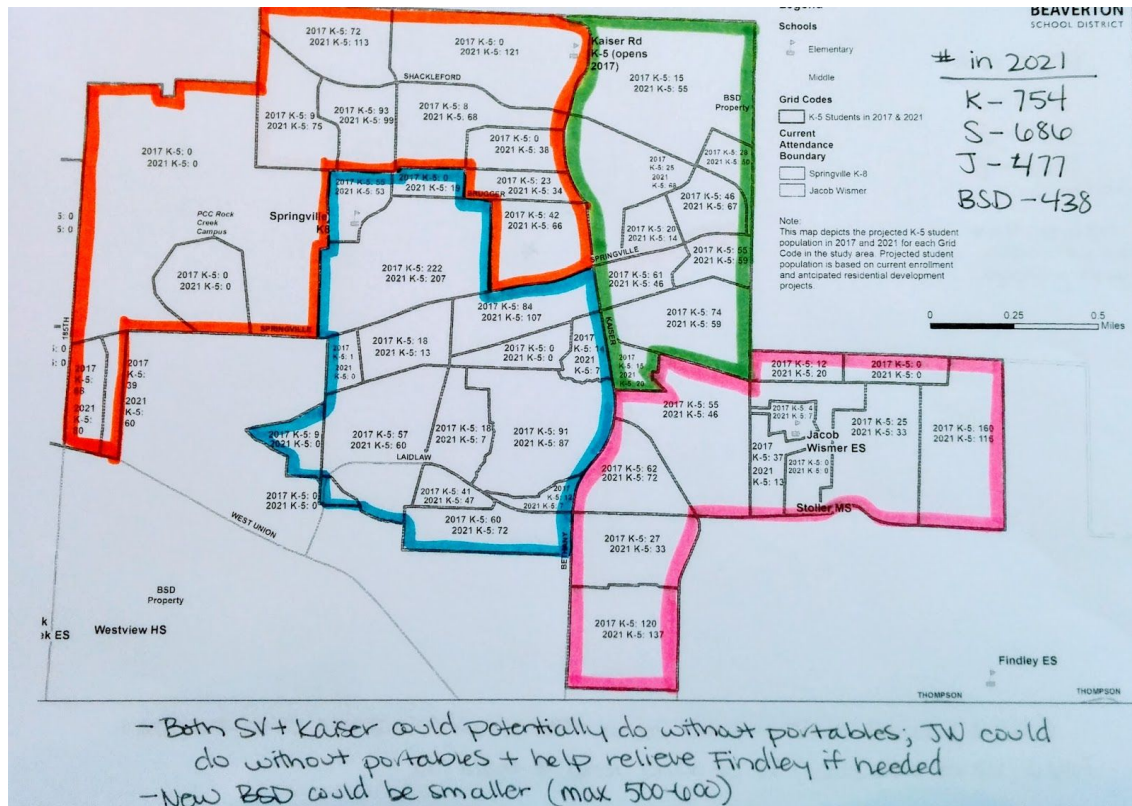 BEAVERTON
SCHOOL DISTRICT
Legend
Schools
Elementary
Middle
Grid Codes
K-5 Students in 2017 & 2021
Current
Attendance
Boundary
Springville K-8
Jacob Wismer
Note:
This map depicts the projected K-5 student
population in 2017 and 2021 for each Grid
Code in the study area. Projected student
population is based on current enrollment
and anticipated residential development
projects.
0 0.25 0.5
Miles
# in 2021
K - 754
S - 686
J - 477
BSD - 438
2017 K-5: 72
2021 K-5: 113
2017 K-5: 0
2021 K-5: 121
Kaiser Rd
K-5 (opens
2017)
SHACKLEFORD
2017 K-5: 15
2021 K-5: 55
BSD
Property
2017 K-5: 9
2021 K-5: 75
2017 K-5: 93
2021 K-5: 99
2017 K-5: 8
2021 K-5: 68
2017 K-5: 0
2021 K-5: 38
2017 K-5: 0
2021 K-5: 0
2021 K-5: 53
2017 K-5: 0
2021 K-5: 19
2017 K-5: 23
2021 K-5: 34
BRUGGER
2017
K-5: 25
2021
2017 K-5: 46
2021 K-5: 67
5: 0
5: 0
PCC Rock
Creek
Campus
Springville
K8
2017 K-5: 42
2021 K-5: 66
2017 K-5: 20
2021 K-5: 14
2017 K-5: 55
2021 K-5: 59
SPRINGVILLE
2017 K-5: 0
2021 K-5: 0
2017 K-5: 222
2021 K-5: 207
2017 K-5: 61
2021 K-5: 46
2017 K-5: 84
2021 K-5: 107
2017 K-5: 74
2021 K-5: 59
185TH
SPRINGVILLE
KAISER
2017
K-5: 1
2021
K-5: 0
2017 K-5: 18
2021 K-5: 13
2017 K-5: 0
2021 K-5: 0
2017
2021
K-5: 7
2017
K-5: 15
2021
2017
2021
2017
K-5:
39
2021
K-5:
60
2017 K-5: 12
2021 K-5: 20
2017 K-5: 0
2021 K-5: 0
2017 K-5: 55
2021 K-5: 46
2017 K-5: 4
2021 K-5: 7
Jacob
Wismer ES
2017 K-5: 25
2021 K-5: 33
2017 K-5: 160
2021 K-5: 116
2017 K-5: 9
2021 K-5: 0
2017 K-5: 57
2021 K-5: 60
2017 K-5: 18
2021 K-5: 7
2017 K-5: 91
2021 K-5: 87
2017
K-5: 37
2021
K-5: 13
2017 K-5: 0
2021 K-5: 0
LAIDLAW
2017 K-5: 62
2021 K-5: 72
2017 K-5: 0
2021 K-5: 0
2017 K-5: 41
2021 K-5: 47
2017
2021 K-5: 7
Stoller MS
WEST UNION
2017 K-5: 60
2021 K-5: 72
2017 K-5: 27
2021 K-5: 33
BETHANY
BSD
Property
k
ek ES
Westview HS
2017 K-5: 120
2021 K-5: 137
Findley ES
THOMPSON
THOMPSON
- Both SV + Kaiser could potentially do without portables; JW could
do without portables + help relieve Findley if needed
- New BSD could be smaller (max 500-600)